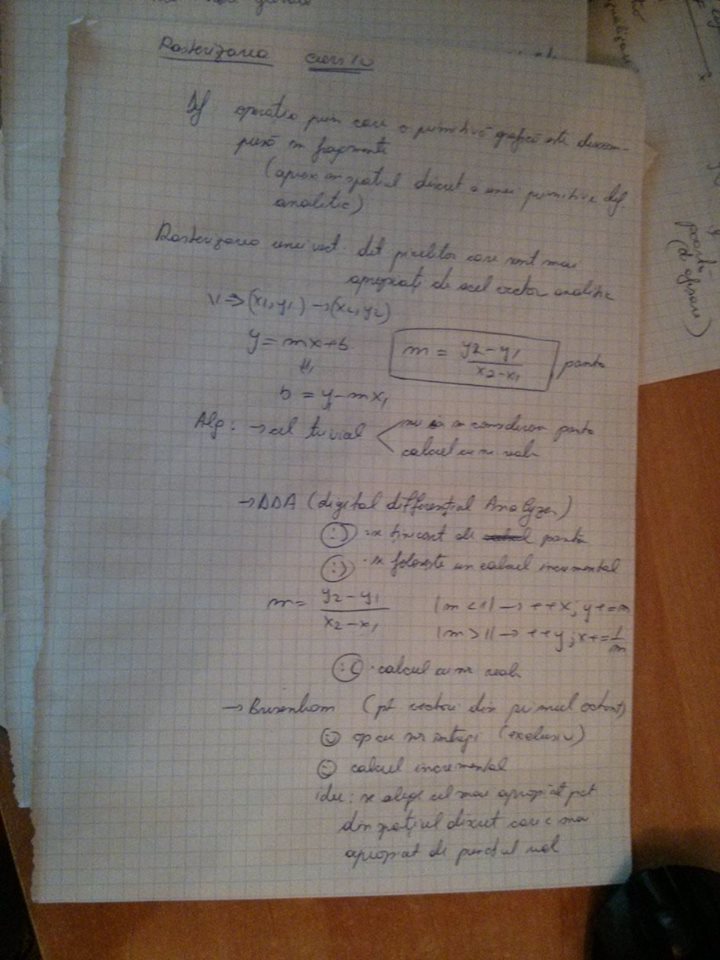 Rasterizarea curs IV
Df operatia prin care o primitivă grafică este descom-
pusă in fragmente
(aprox in spatiul discret a unei primitive def.
analitic)
Rasterizarea unui vect. det pixelilor care sunt mai
apropiați de acel vector analitic
V => (x1, y1) → (x2, y2)
y = mx+b
m = y2 - y1 / x2 - x1 panta
b = y1 - mx1
Alg: → cel trivial
nu se considera panta
calcul cu nr reale
→ DDA (digital differential Analyzer)
:) · se tine cont de panta
:) · se foloseste un calcul incremental
m = y2 - y1 / x2 - x1
|m < 1| → ++x; y+=m
|m > 1| → ++y; x+=1/m
:( · calcul cu nr reale
→ Bresenham (pt vectori din primul octant)
op cu nr intregi (exclusiv)
calcul incremental
idee: se alege cel mai apropiat pct
din spațiul discret care e mai
apropiat de punctul real
poartă
(de afisare)